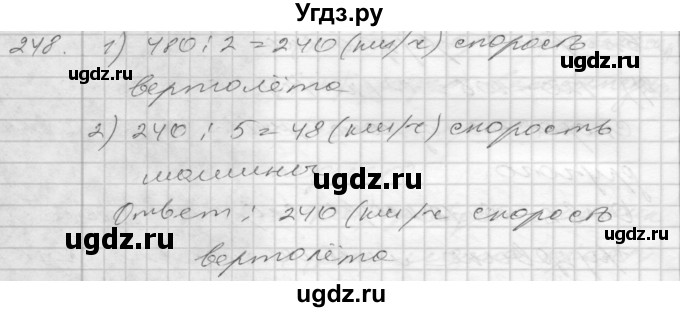 Угдз.ру
248. 1) 480 : 2 = 240 (км/ч) скорость
вертолёта
ugdz.ru ugdz.ru
2) 240 : 5 = 48 (км/ч) скорость
ugdz.ru
машины
ugdz.ru
Ответ : 240 (км/ч скорость
ugdz.ru ugdz.ru
вертолёта
ugdz.ru